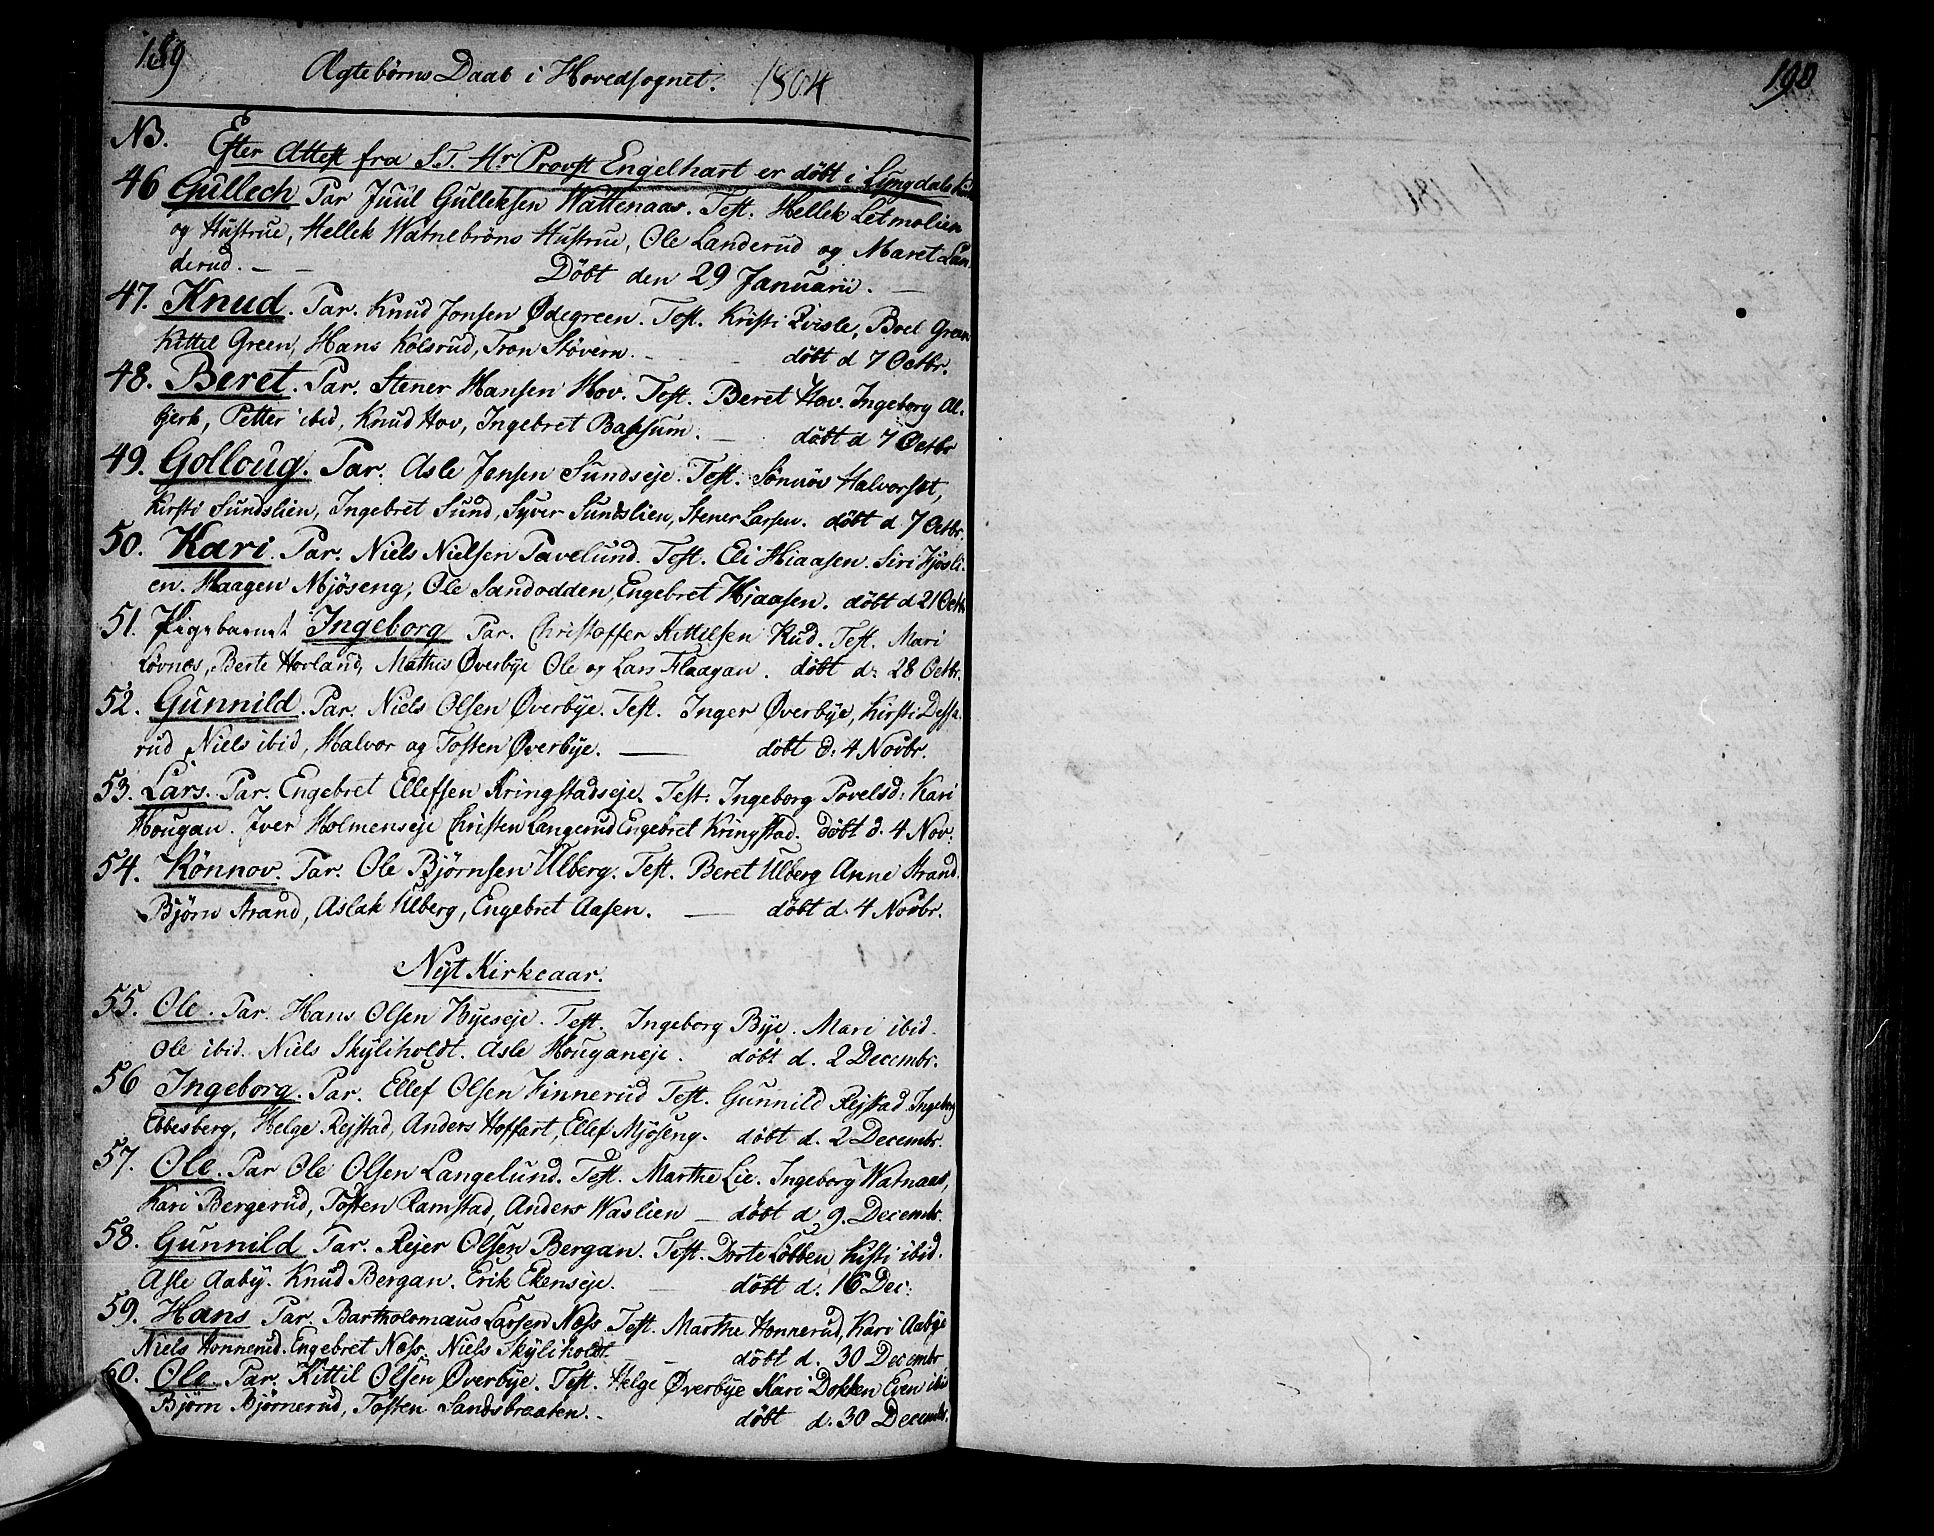 189
Ægtebørns Daab i Hovedsognet. 1804
NB. Efter Attest fra S.T. Hr Provst Engelhart er döbt i Lyngdals
46 Gullech Par Juul Gulleksen Wattenaas. Test. Hellek Letmolien
og Hustrue, Hellek Watnebröns Hustrue, Ole Landerud og Maret Lan
derud. — — Döbt den 29 Januarii. —
47. Knud. Par. Knud Jonsen Ødegreen. Test. Kristi Qvisle, Boel Green
Kittil Green, Hans Kolsrud, Tron Stövern. — döbt d 7 Octbr.
48. Beret. Par. Stener Hansen Hov. Test. Beret Hov. Ingeborg Al-
bjerk, Petter ibid, Knud Hov, Ingebret Bahsum. — döbt d 7 Octbr
49. Golloug. Par. Asle Jensen Sundseje. Test. Sönnöv Halvorset,
Kirsti Sundslien, Ingebret Sund, Syver Sundslien, Stener Larsen. döbt d 7 Octbr.
50. Kari. Par. Niels Nielsen Pavelund. Test. Eli Hiaasen. Siri Hjösli-
en. Haagen Mjöseng, Ole Sandodden, Engebret Hjaasen. döbt d 21 Octb
51. Pigebarnet Ingeborg Par. Christoffer Kittilsen Rud. Test. Mari
Lovnes, Berte Hovland, Mathis Øverbye Ole og Lars Flaagan. döbt d: 28 Octbr.
52. Gunnild. Par. Niels Olsen Øverbye. Test. Inger Øverbye, Kirsti Dessa-
rud Niels ibid, Halvor og Tosten Øverbye. — döbt d. 4 Novbr.
53. Lars. Par. Engebret Ellefsen Kringstadseje. Test: Ingeborg Povelsd: Kari
Hougan. Iver Holmenseje Christen Langerud Engebret Kringstad. döbt d. 4 Nov:
54. Rönnov. Par. Ole Björnsen Ulberg. Test. Beret Ulberg Anne Strand.
Björn Strand, Aslak Ulberg, Engebret Aasen. — döbt d. 4 Novbr.
Nyt Kirkeaar.
55. Ole. Par. Hans Olsen Byeseje. Test. Ingeborg Bye. Mari ibid.
Ole ibid. Niels Skyliholdt. Asle Houganeje. döbt d. 2 Decembr.
56 Ingeborg. Par. Ellef Olsen Finnerud Test. Gunnild Rejstad Ingeborg
Ebbesberg, Helge Rejstad, Anders Hoffart, Ellef Mjöseng. döbt d. 2 Decembr.
57. Ole. Par Ole Olsen Langelund. Test. Marthe Lie. Ingeborg Watnaas,
Kari Bergerud, Tosten Ramstad, Anders Waslien — döbt d 9. Decembr.
58. Gunnild Par. Rejer Olsen Bergan. Test. Dorte Löbben, Kisti ibid.
Asle Aaby. Knud Bergan. Erik Ekenseje. — döbt d. 16 Dec:
59. Hans Par. Bartholomæus Larsen Næss. Test. Marthe Honnerud, Kari Aabye
Niels Honnerud. Engebret Næss. Niels Skyliholdt. — döbt d. 30 Decembr
60. Ole. Par. Kittil Olsen Øverbye. Test. Helge Øverbye Kari Dokken Even ibid
Björn Björnerud, Tosten Sandsbraaten. — döbt d. 30 Decembr.
190